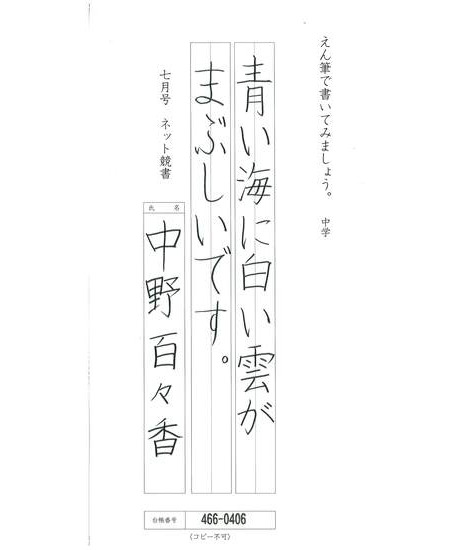 えん筆で書いてみましょう。 中学
青い海に白い雲が
まぶしいです。
七月号 ネット競書
氏名
中野百々香
台帳番号 466-0406
(コピー不可)